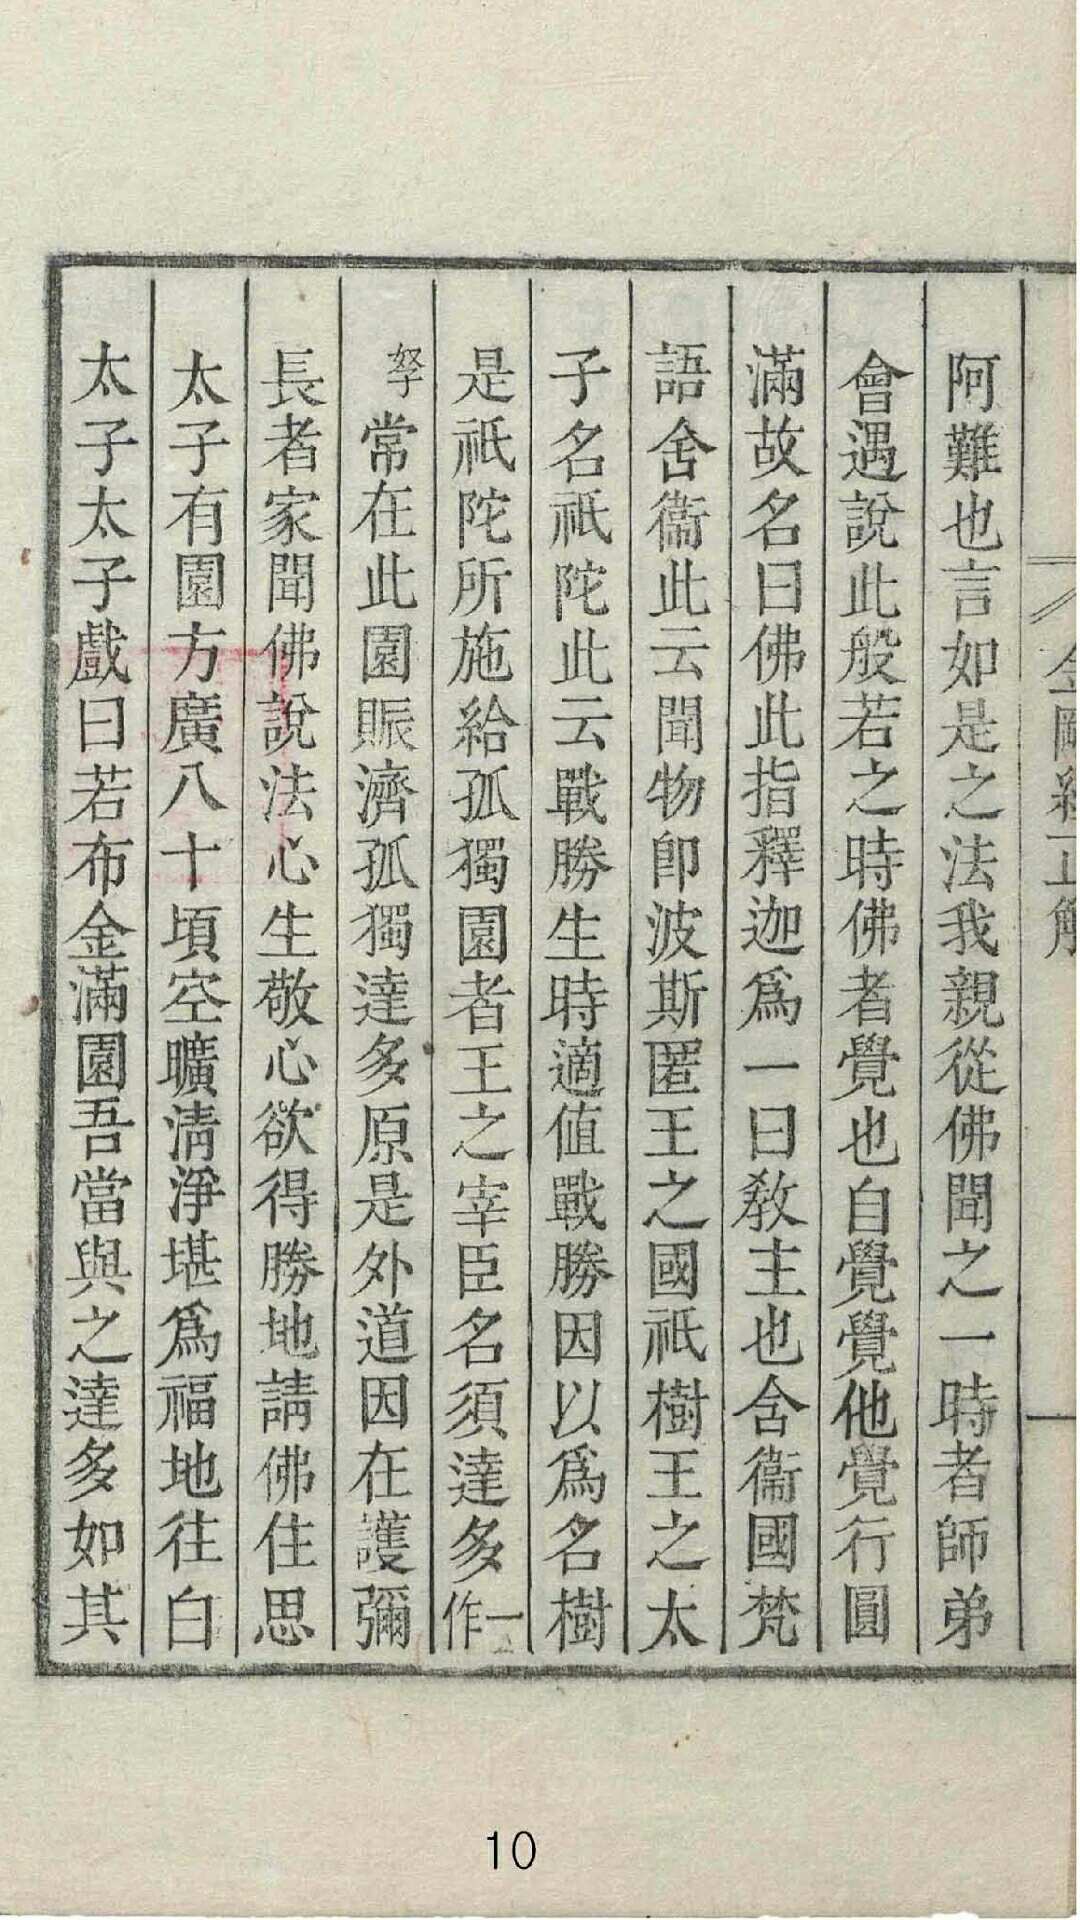 金剛經正解
一
阿難也言如是之法我親從佛聞之一時者師弟
會遇說此般若之時佛者覺也自覺覺他覺行圓
滿故名曰佛此指釋迦爲一曰敎主也舍衞國梵
語舍衞此云聞物卽波斯匿王之國祇樹王之太
子名祇陀此云戰勝生時適值戰勝因以爲名樹
是祇陀所施給孤獨園者王之宰臣名須達多一作
拏常在此園賑濟孤獨達多原是外道因在護彌
長者家聞佛說法心生敬心欲得勝地請佛住思
太子有園方廣八十頃空曠清淨堪爲福地往白
太子太子戲曰若布金滿園吾當與之達多如其
10